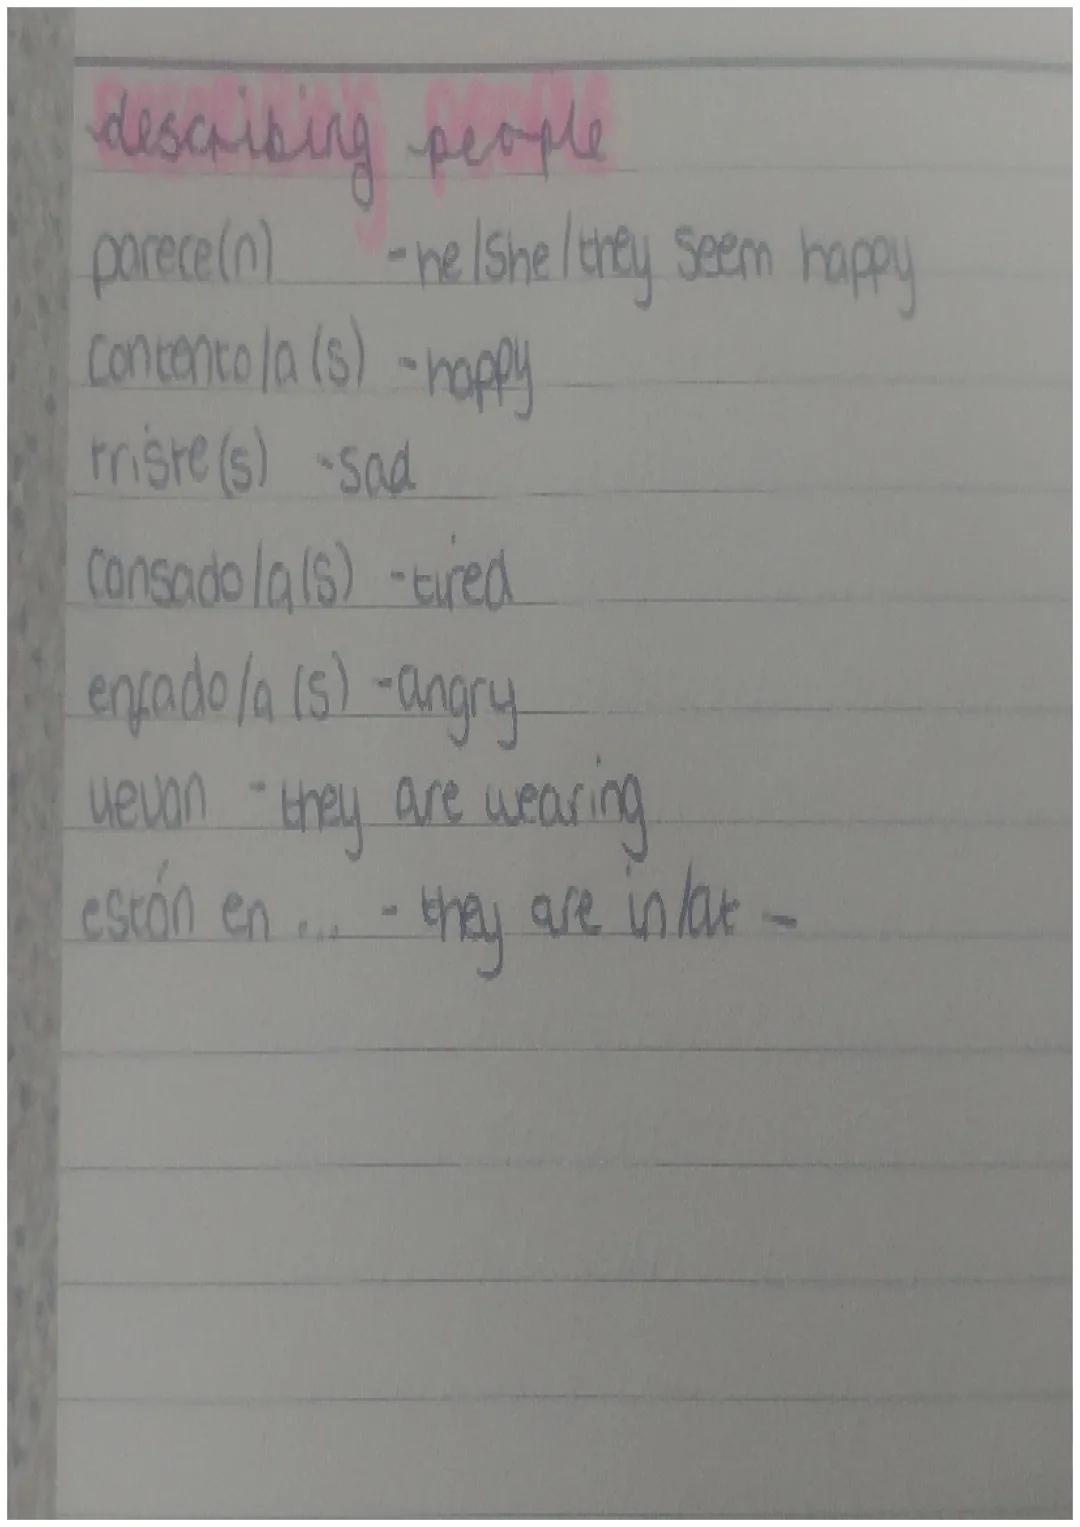 describing people
parece(n) -he/she/they seem happy
contento/a (s) -happy
triste(s) -sad
cansado/a(s) -tired
enfado/a (s) -angry
llevan -they are wearing
están en ... - they are in/at -